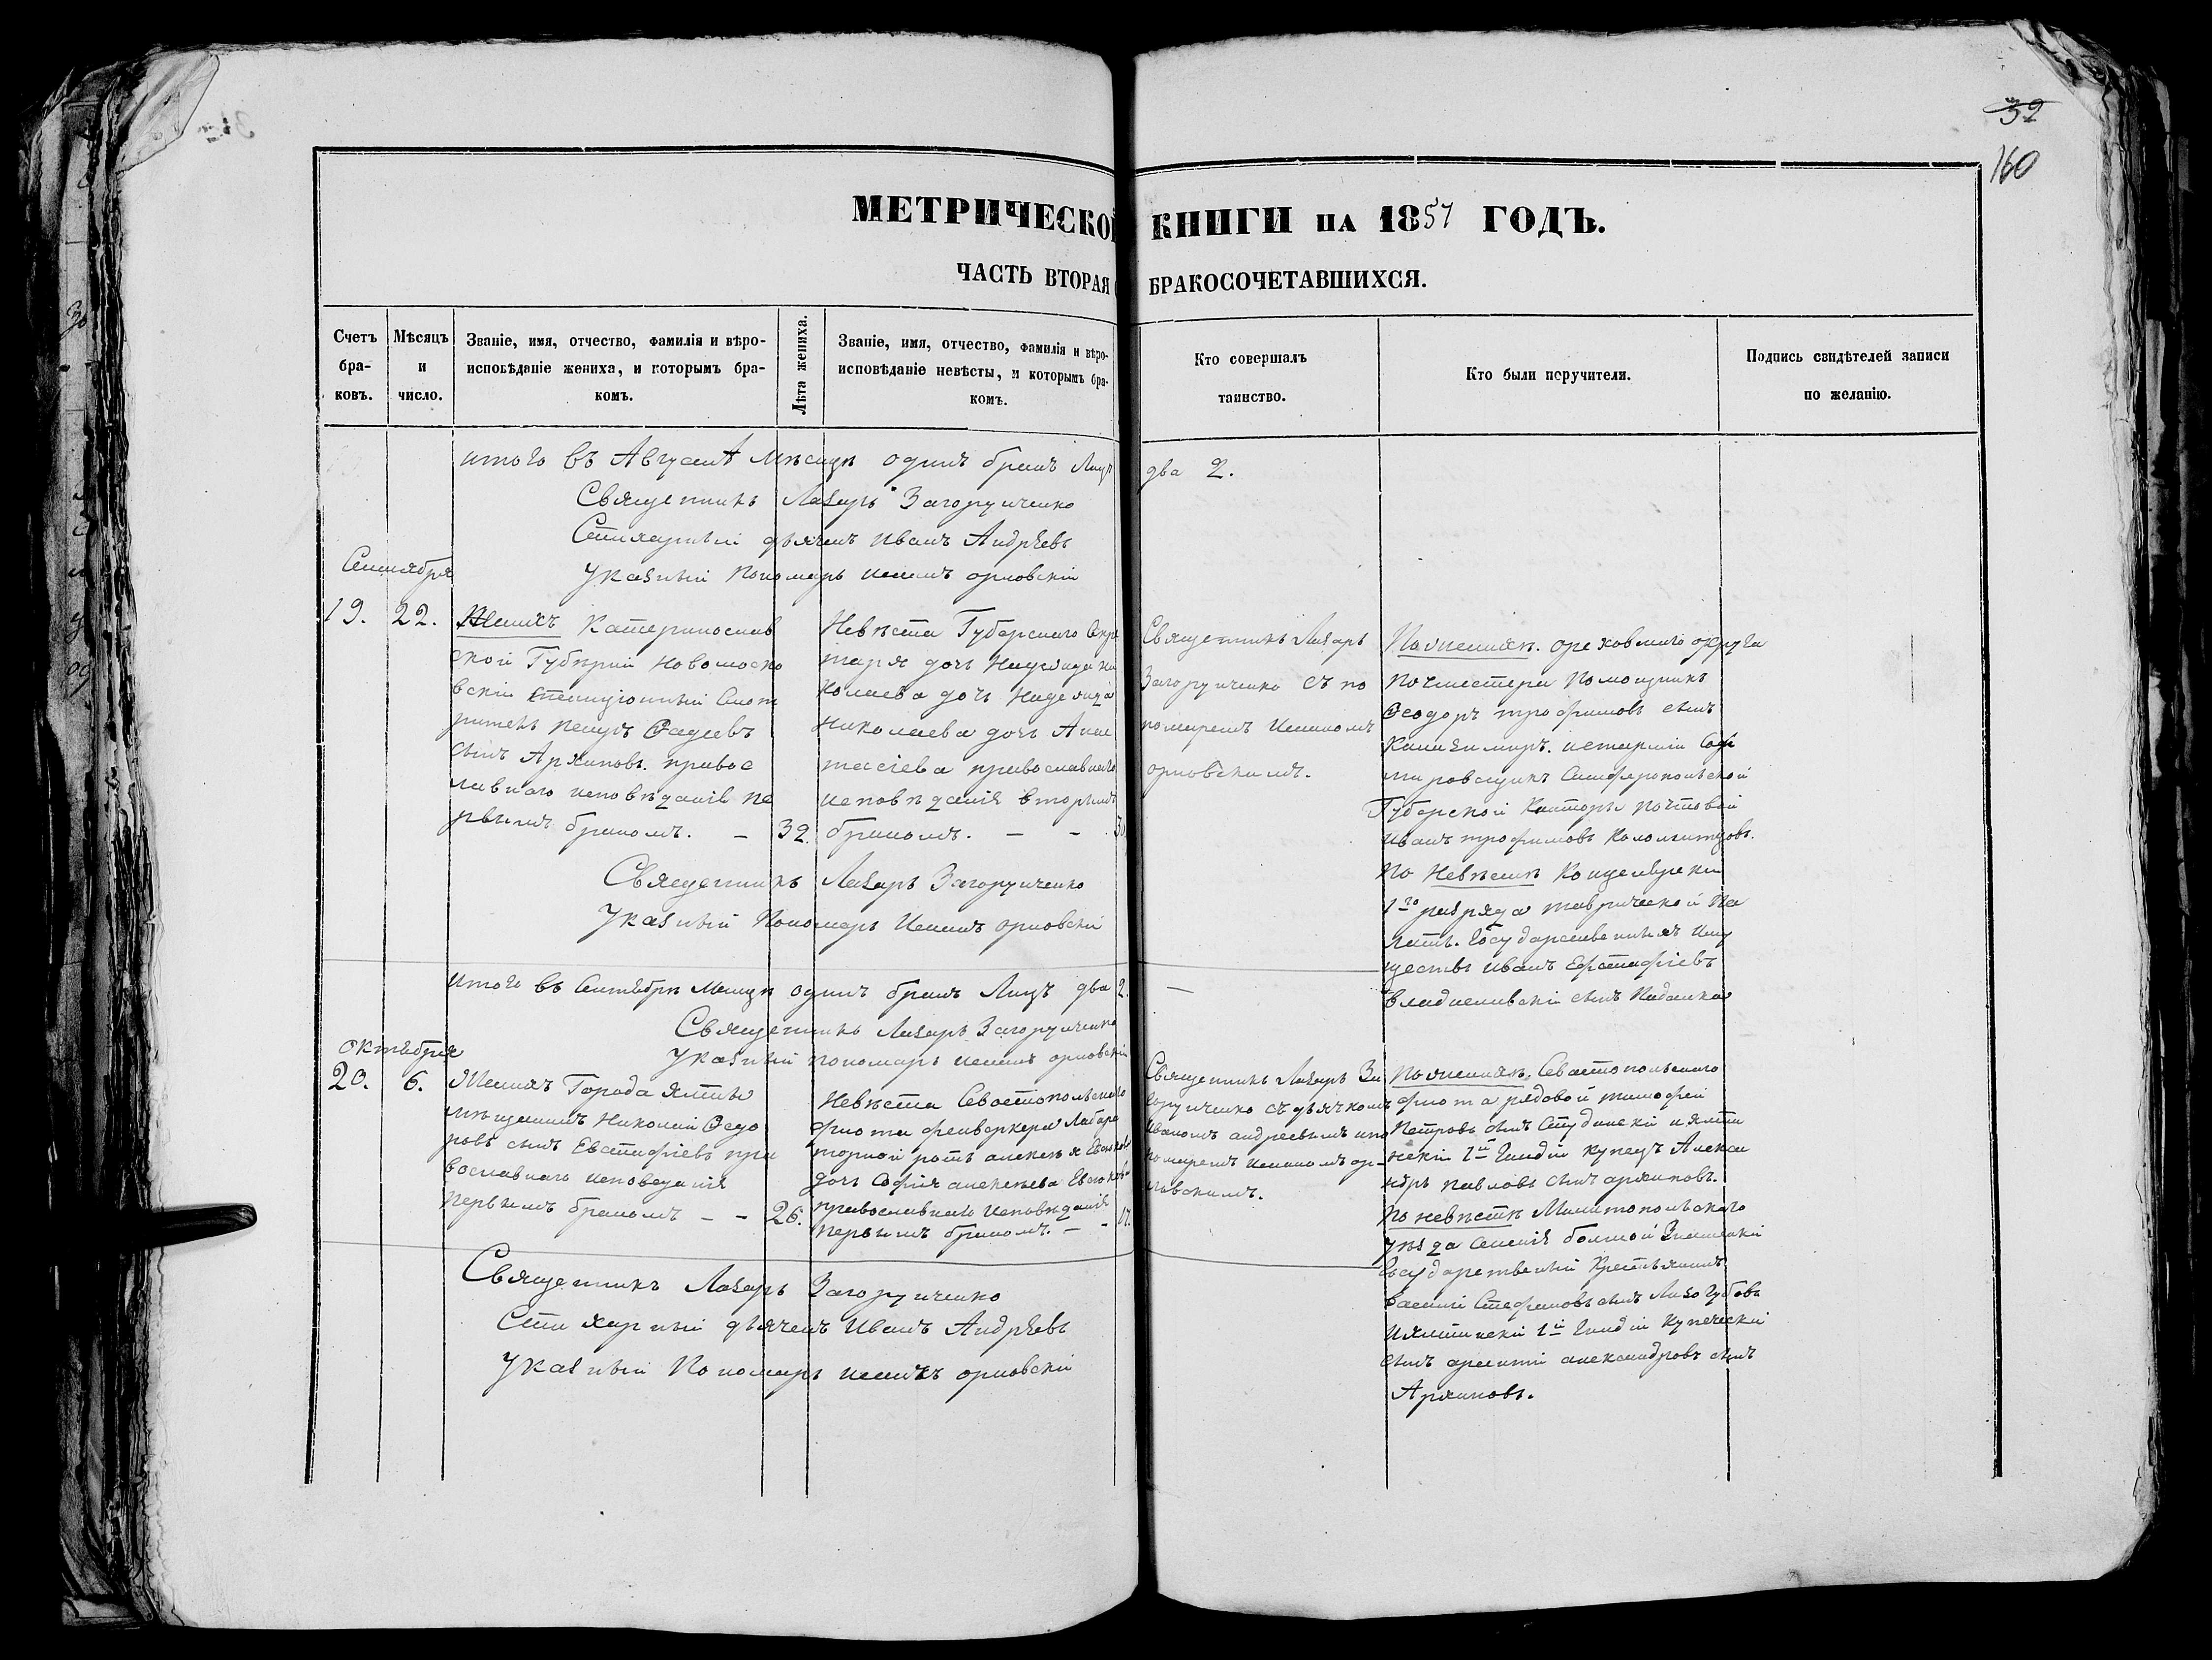 32
160
МЕТРИЧЕСКОЙ КНИГИ НА 1857 ГОДЪ.
ЧАСТЬ ВТОРАЯ БРАКОСОЧЕТАВШИХСЯ.
Счетъ бра-ковъ.
Мѣсяцъ и число.
Званіе, имя, отчество, фамилія и вѣро-
исповѣданіе жениха, и которымъ бра-
комъ.
Лѣта жениха.
Званіе, имя, отчество, фамилія и вѣро-
исповѣданіе невѣсты, и которымъ бра-
комъ.
Кто совершалъ
таинство.
Кто были поручители.
Подпись свидѣтелей записи
по желанію.
итого въ Августѣ Мѣсяцѣ одинъ бракъ Лицъ два 2.
Священникъ Лазарь Загорученко
Стихарный дьячекъ Иванъ Андрѣевъ
Указный Пономарь орловскій
Сентября
19. 22.
Женихъ Катеринослав
ской Губерніи Новомоско
вскій станціонный Смот
ритель Фадеевъ
сынъ Архиповъ. правос
лавнаго исповѣданія пе
рвымъ бракомъ. – 32.
Невѣста Губерскаго Секре
таря дочь
Николаева дочь
православнаго
исповѣданія вторымъ
бракомъ. – –
Священникъ Лазарь
Загорученко съ по
номаремъ
орловскимъ.
По женихѣ. ореховскаго округа
почтместера Помощникъ
Феодоръ трофимовъ сынъ
старшій Сор
тировщикъ Симферопольской
Губерской Канторы Почтовой
Иванъ трофимовъ
По Невѣстѣ Концелярски
1го разряда таврической Па
латы. Государственныхъ Иму
ществъ Иванъ Ефстафіевъ
сынъ
Священникъ Лазарь Загорученко
Указный Пономарь орловскій
Итого въ Сентябрѣ Месяцѣ одинъ бракъ Лицъ два 2. –
Священникъ Лазарь Загорученко
Указный пономарь орловскій
октября
20. 6.
Женихъ Города Ялты
мѣщанинъ Николай Федо
ровъ сынъ Евстафіевъ пра
вославнаго исповеданія
первымъ бракомъ – – 26.
Невѣста Севостопольскаго
флота фейверкера Лабора
торной ротъ
дочь Софія алексѣева
православнаго исповѣданія
первымъ бракомъ. – – 17.
Священникъ Лазарь За
горученко съ дьячкомъ
Иваномъ андреевымъ и по
номаремъ ор-
ловскимъ.
По женихѣ. Севастопольскаго
флота рядовой тимофей
Петровъ сынъ и ялти
нскій 1й Гилдіи купецъ Алекса
ндръ павловъ сынъ архиповъ.
По невѣстѣ Мелитопольскаго
уѣзда селенія болшой Знаменки
Государственый Крестьянинъ
Василій Стефановъ сынъ Лизогубовъ
И ялтинскій 1й Гилдіи Купческій
сынъ александровъ сынъ
Архиповъ.
Священникъ Лазарь Загорученко
Стихарный дьячекъ Иванъ Андрѣевъ
Указный Пономарь орловскій